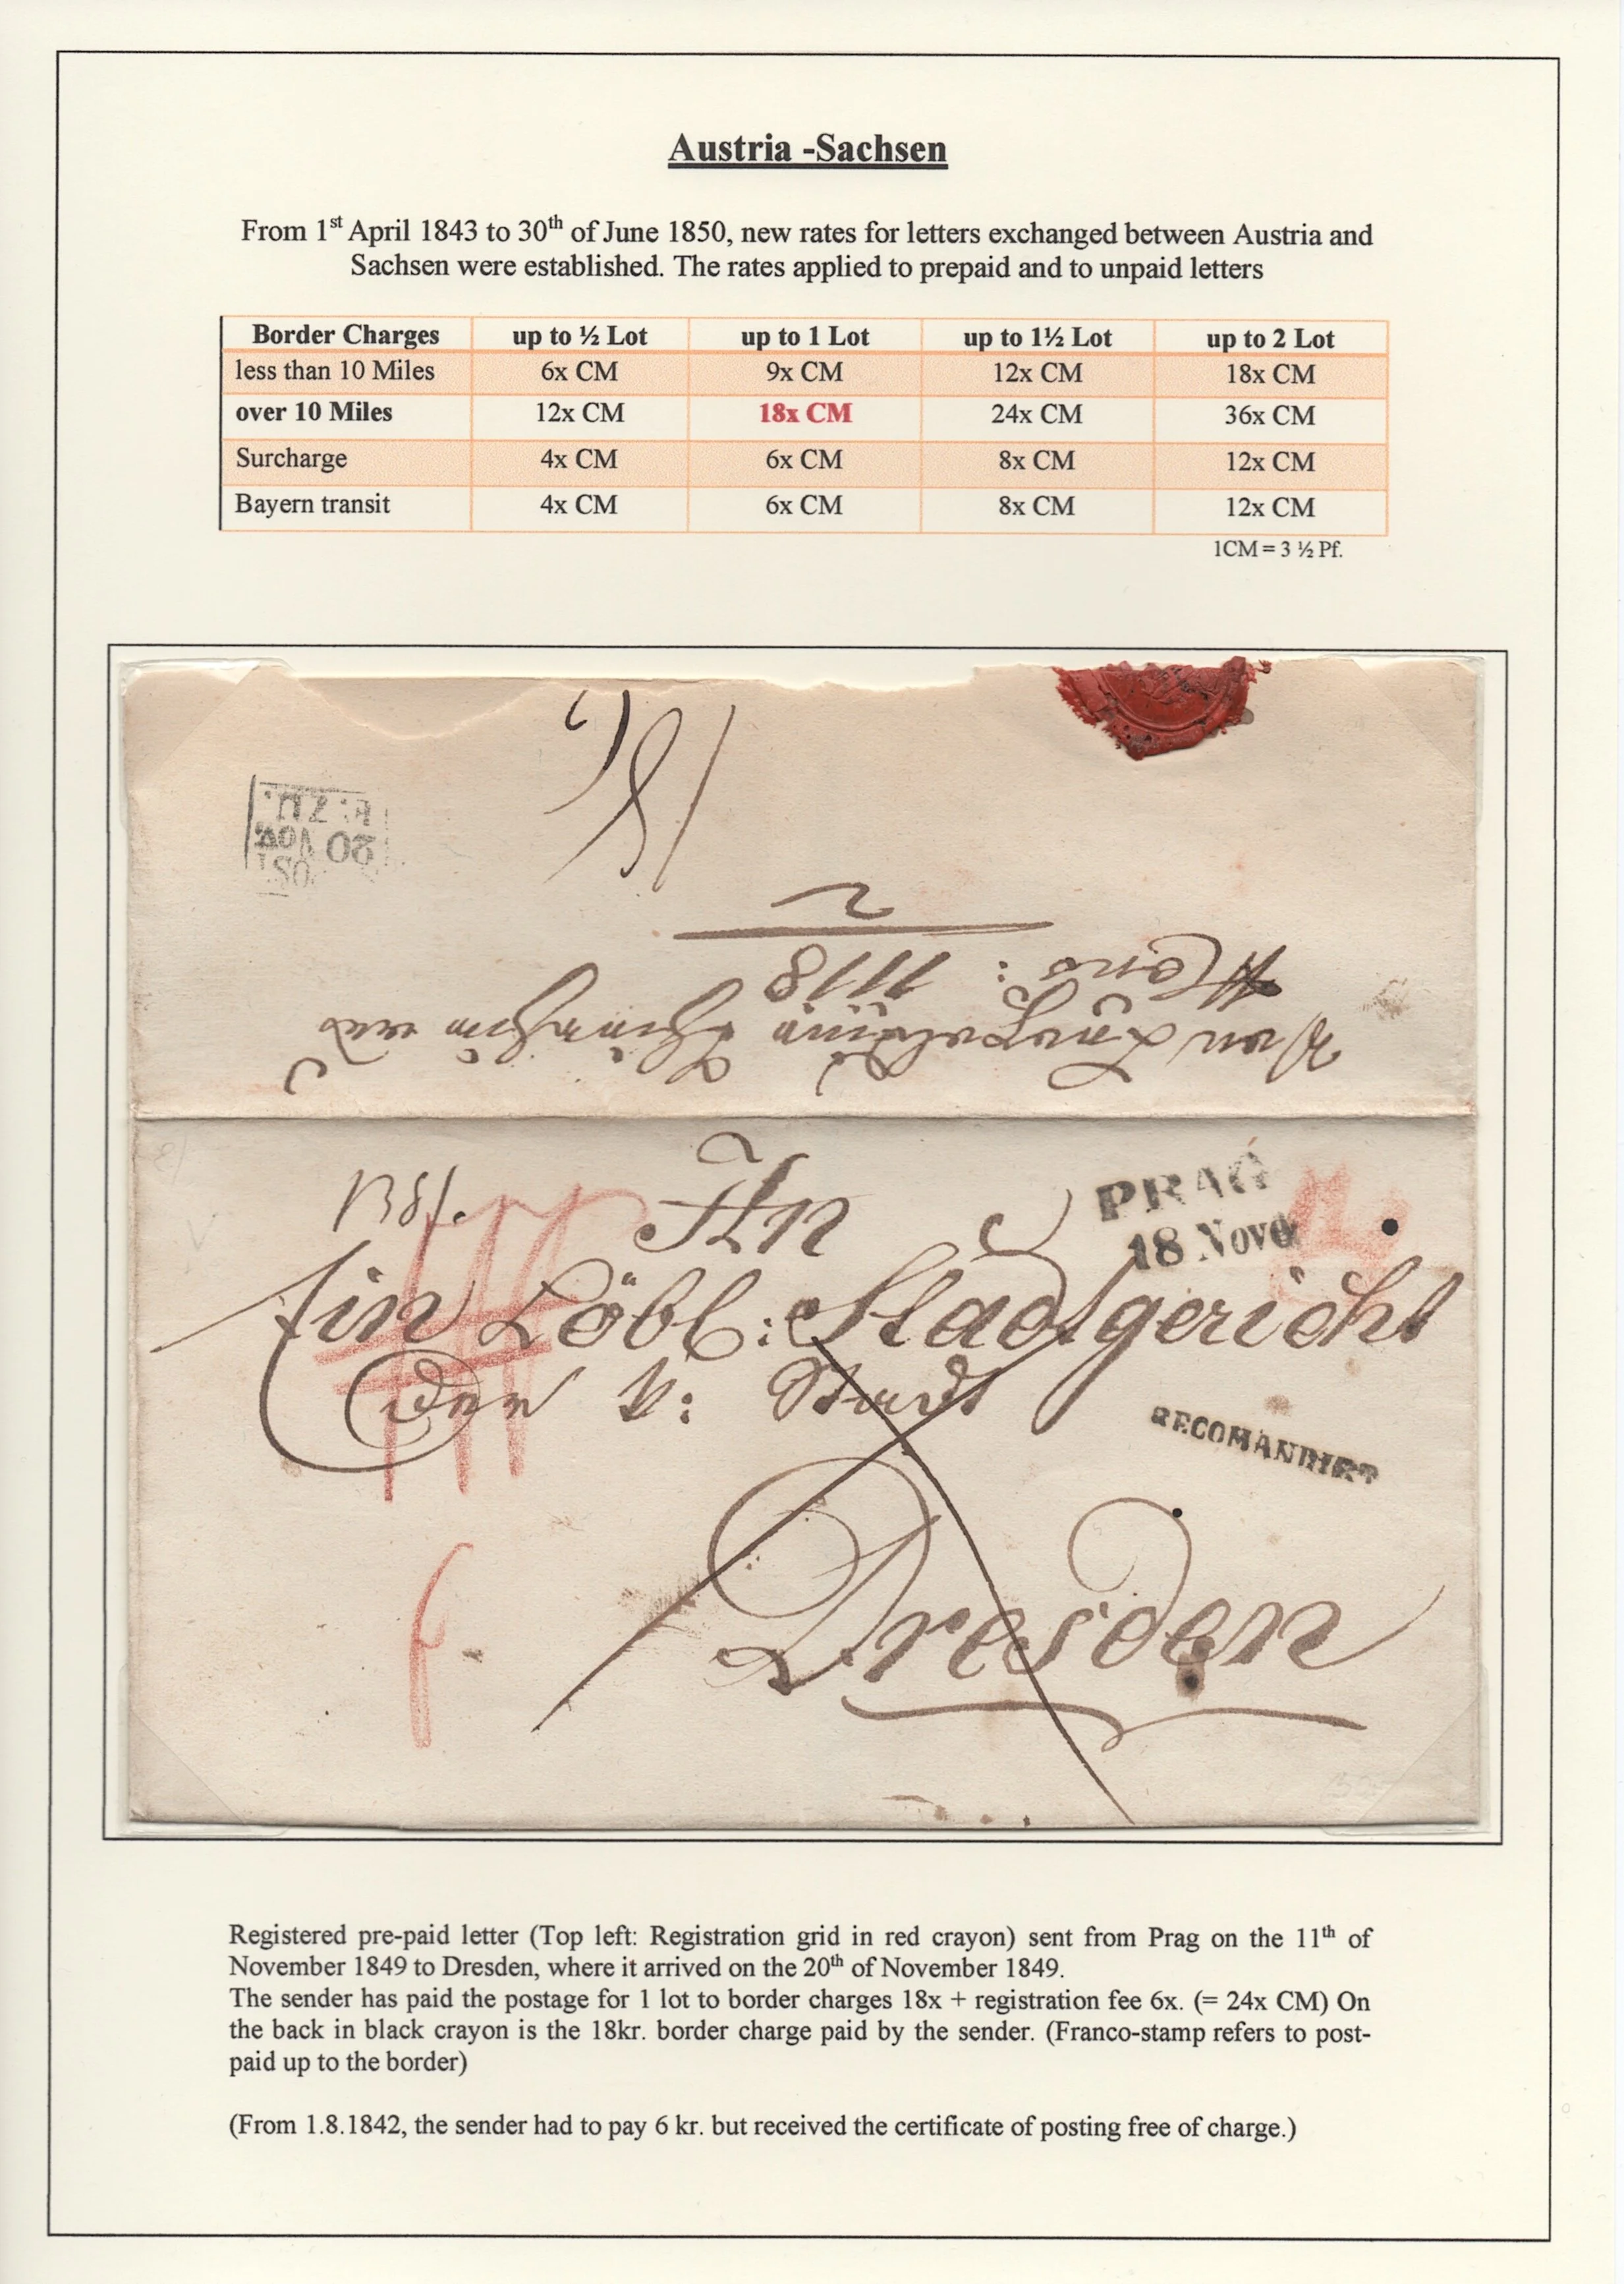 Austria -Sachsen
From 1st April 1843 to 30th of June 1850, new rates for letters exchanged between Austria and
Sachsen were established. The rates applied to prepaid and to unpaid letters
Border Charges up to ½ Lot up to 1 Lot up to 1½ Lot up to 2 Lot
less than 10 Miles 6x CM 9x CM 12x CM 18x CM
over 10 Miles 12x CM 18x CM 24x CM 36x CM
Surcharge 4x CM 6x CM 8x CM 12x CM
Bayern transit 4x CM 6x CM 8x CM 12x CM
1CM = 3 ½ Pf.
20 NOV
1118
An
PRAG
18 Nov
Ein Löbl: Stadtgericht
der k: Stadt
RECOMANDIRT
Dresden
Registered pre-paid letter (Top left: Registration grid in red crayon) sent from Prag on the 11th of
November 1849 to Dresden, where it arrived on the 20th of November 1849.
The sender has paid the postage for 1 lot to border charges 18x + registration fee 6x. (= 24x CM) On
the back in black crayon is the 18kr. border charge paid by the sender. (Franco-stamp refers to post-
paid up to the border)
(From 1.8.1842, the sender had to pay 6 kr. but received the certificate of posting free of charge.)